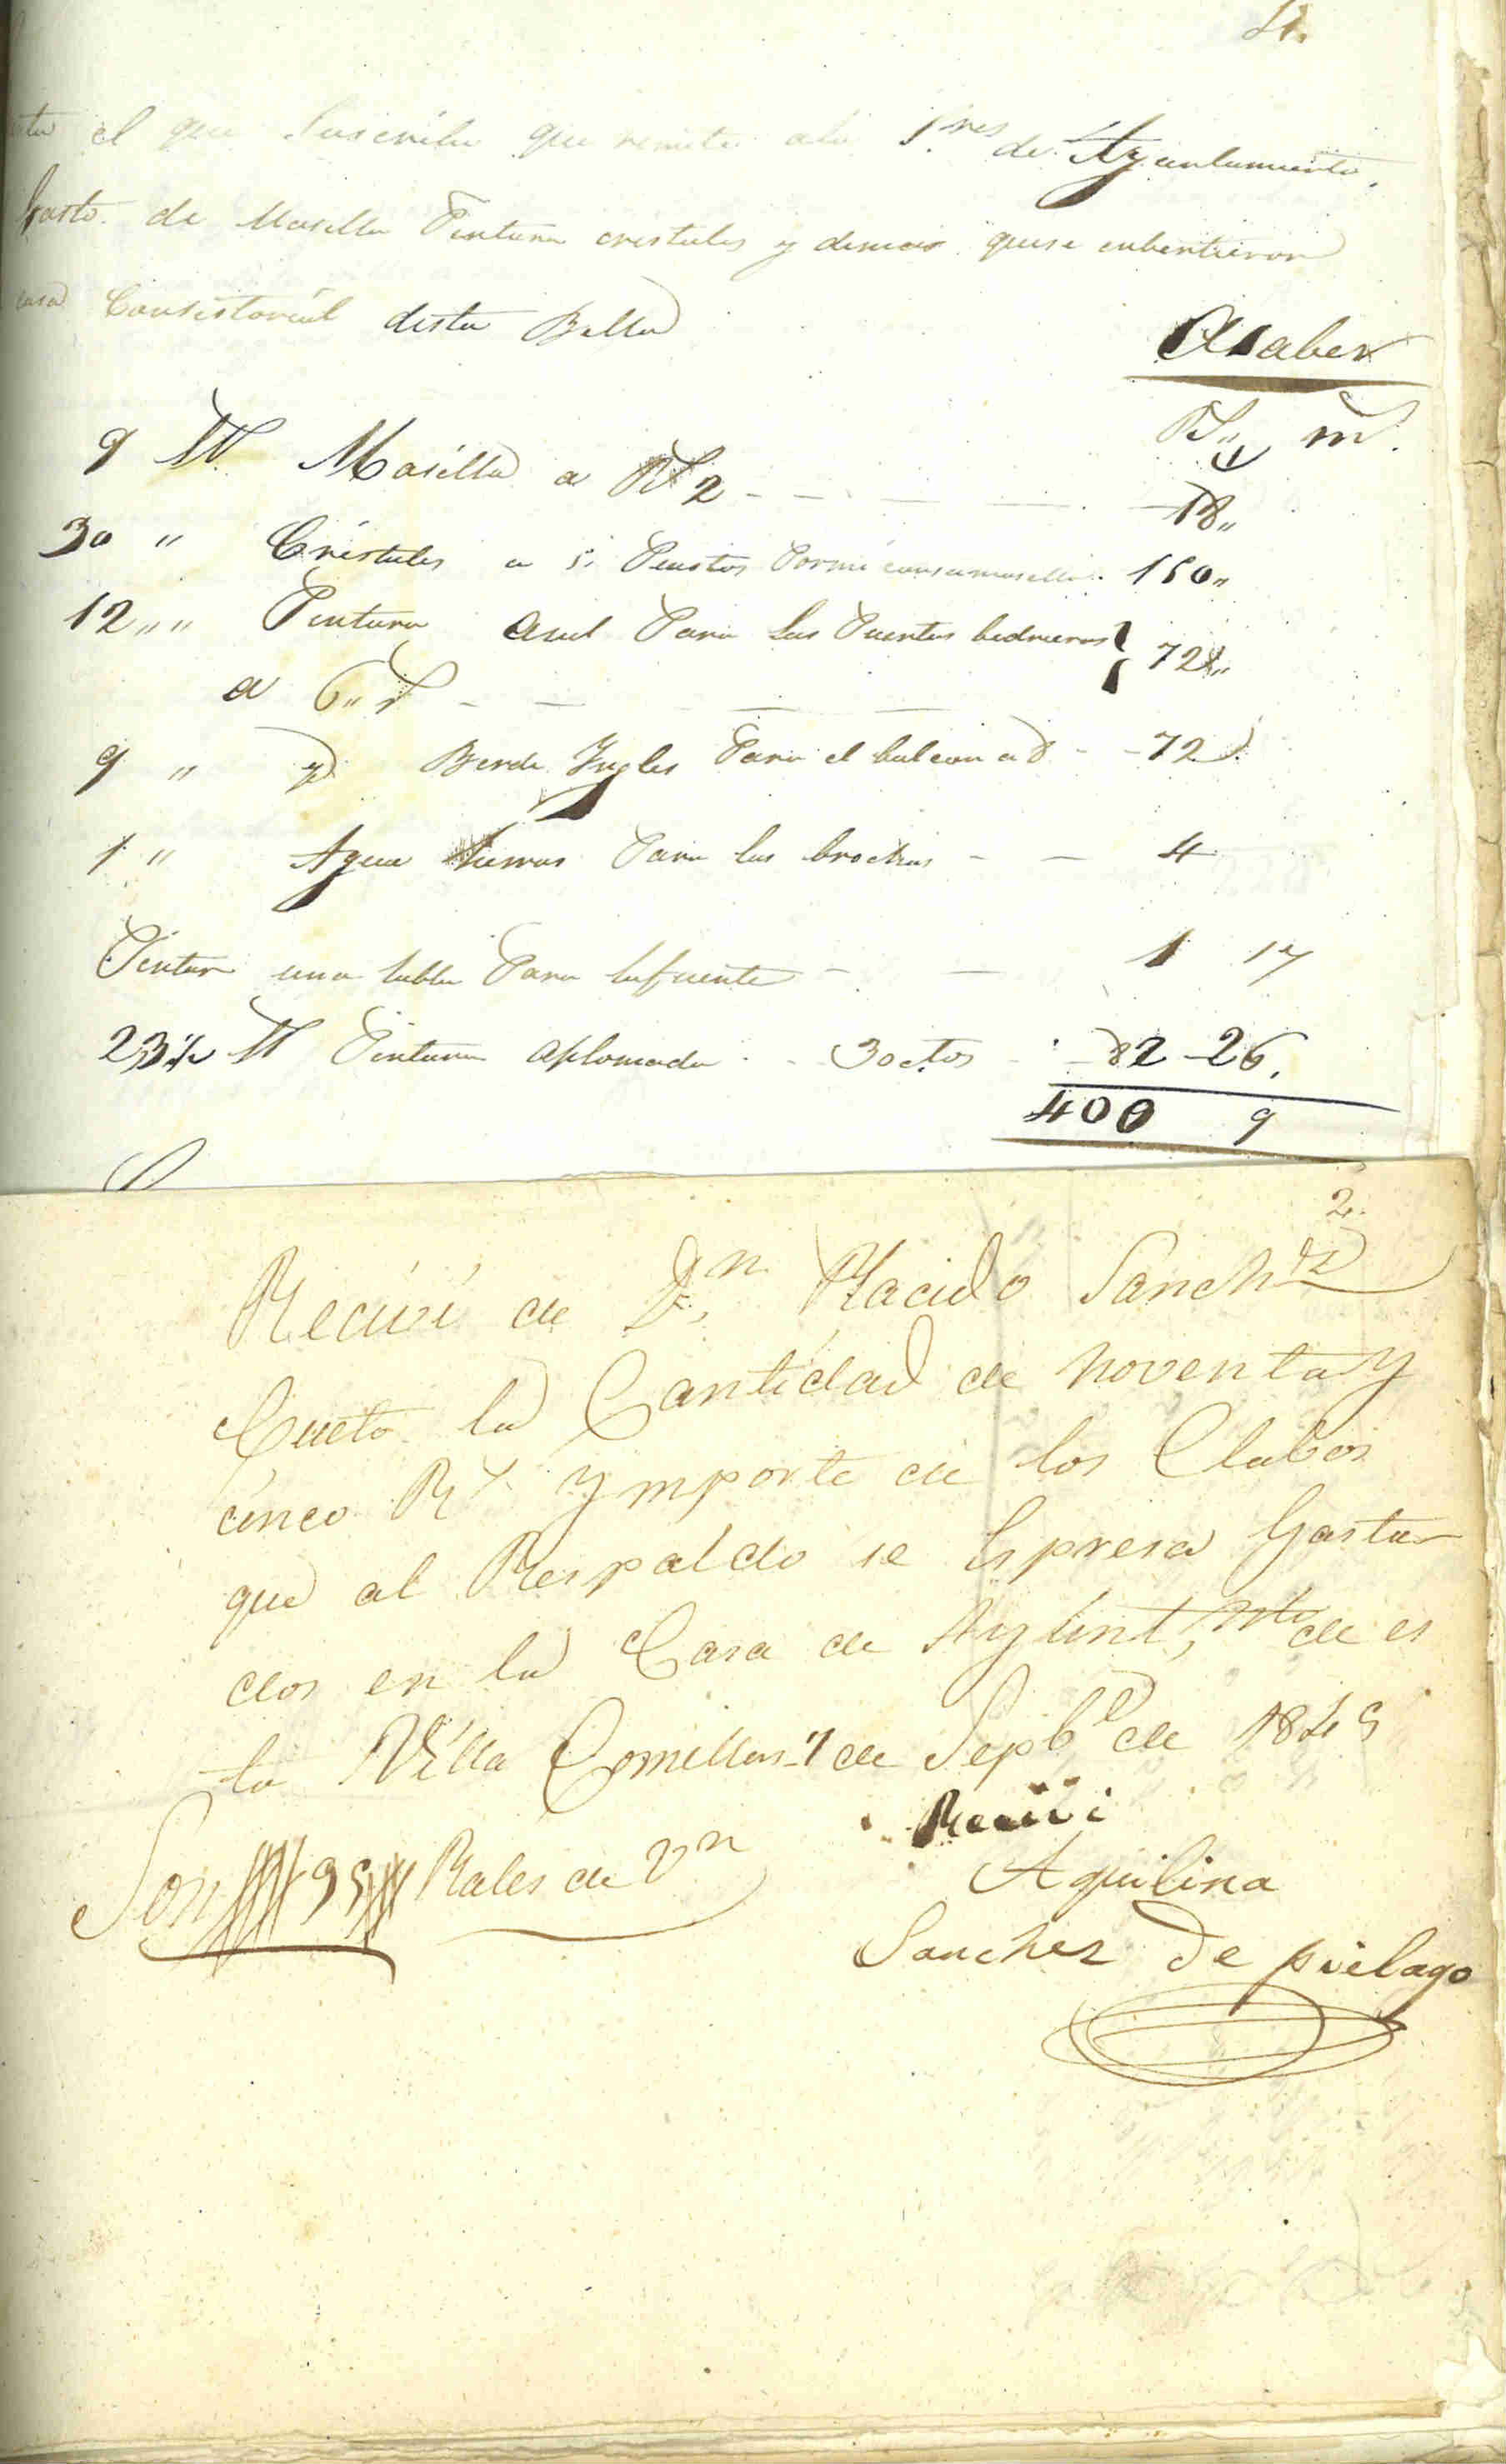 el que Suscribe que remite alos S.res de Ayuntamiento.
Gasto. de Masilla Pintura cristales y demas quese enbentieron
casa Consistorial desta Billa
Asaber
Rs,, ms.
9 lb Masilla a Rs 2 - - - - 18,,
30 ,, Cristales a 5. Puestos Pormi consumasilla. 150,,
12,,,, Pintura Asul Para Las Puertas bidrieras } 72,,
a 6,, rs - - - -
9 ,, yd. Berde Yngles Para el balcon a 8 - - 72
1 ,, Agua Para las brochas - - 4
Pintar una tabla Para lafuente - - 1 17
23 1/2 lb Pintura Aplomada - - 30 ctos - 82 - 26.
400 9
2.
Recivi de D.n Placido Sanch.ez
Cueto la Cantidad de noventa y
cinco Rs. Ymporte de los Clabos
que al Respaldo se Espresa Gasta-
dos en la Casa de Ayunt,mto de es
ta Villa Comillas 7 de Sepb.e de 1849
Recivi
Son 95 Rales de Vn
Aquilina
Sanchez de pielago